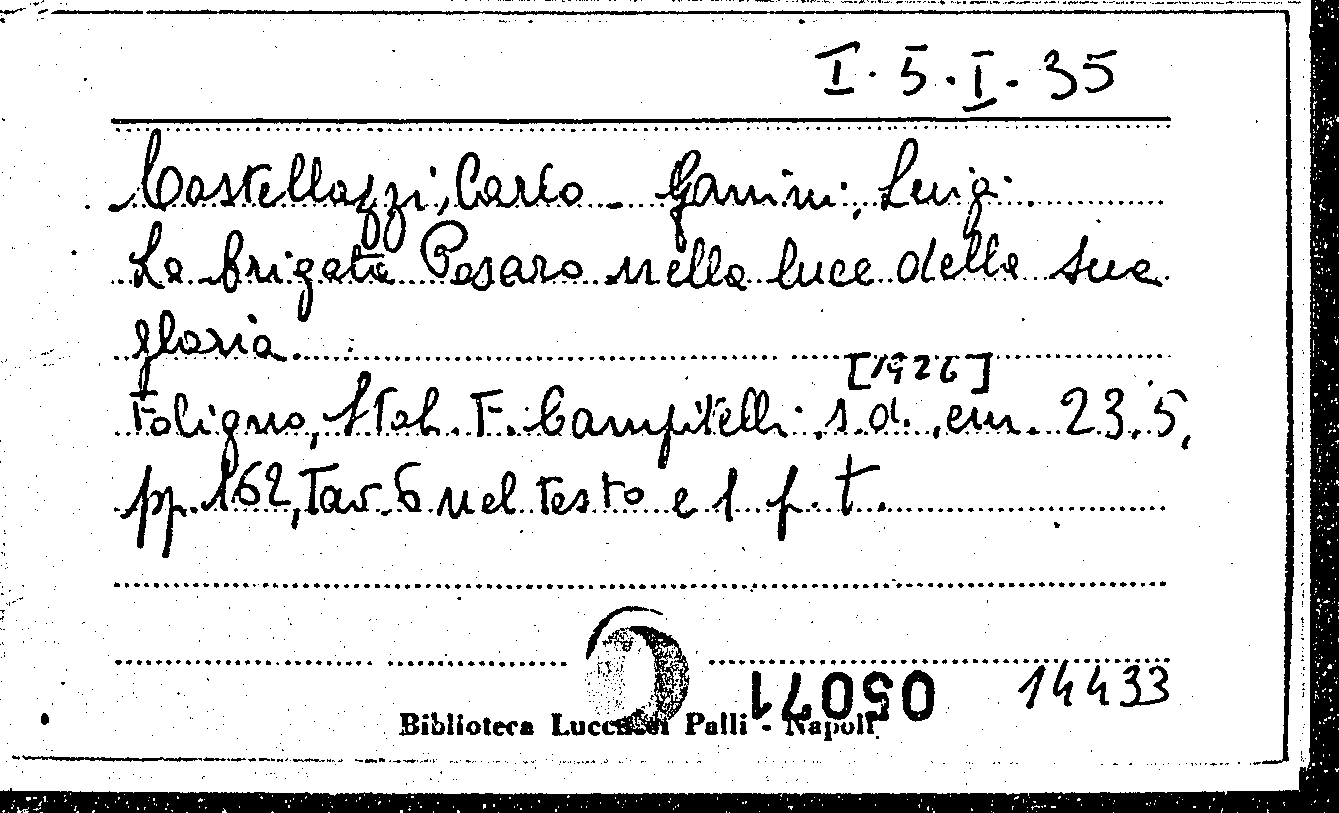 I. 5. I. 35
Castellazzi, Carlo - Gamini, Luigi.
La brigata Pesaro nella luce della sua
gloria.
[1926]
Foligno, Stab. F. Campitelli s.d., cm. 23.5,
pp. 162, Tav. 6 nel testo e 1 f. t.
05071
14433
Biblioteca Lucchesi Palli - Napoli